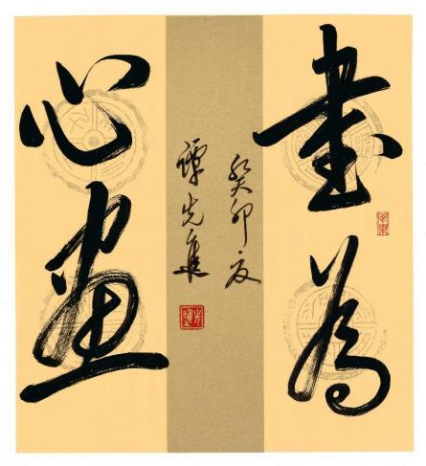 書為
心畫
癸卯夏
譚先進